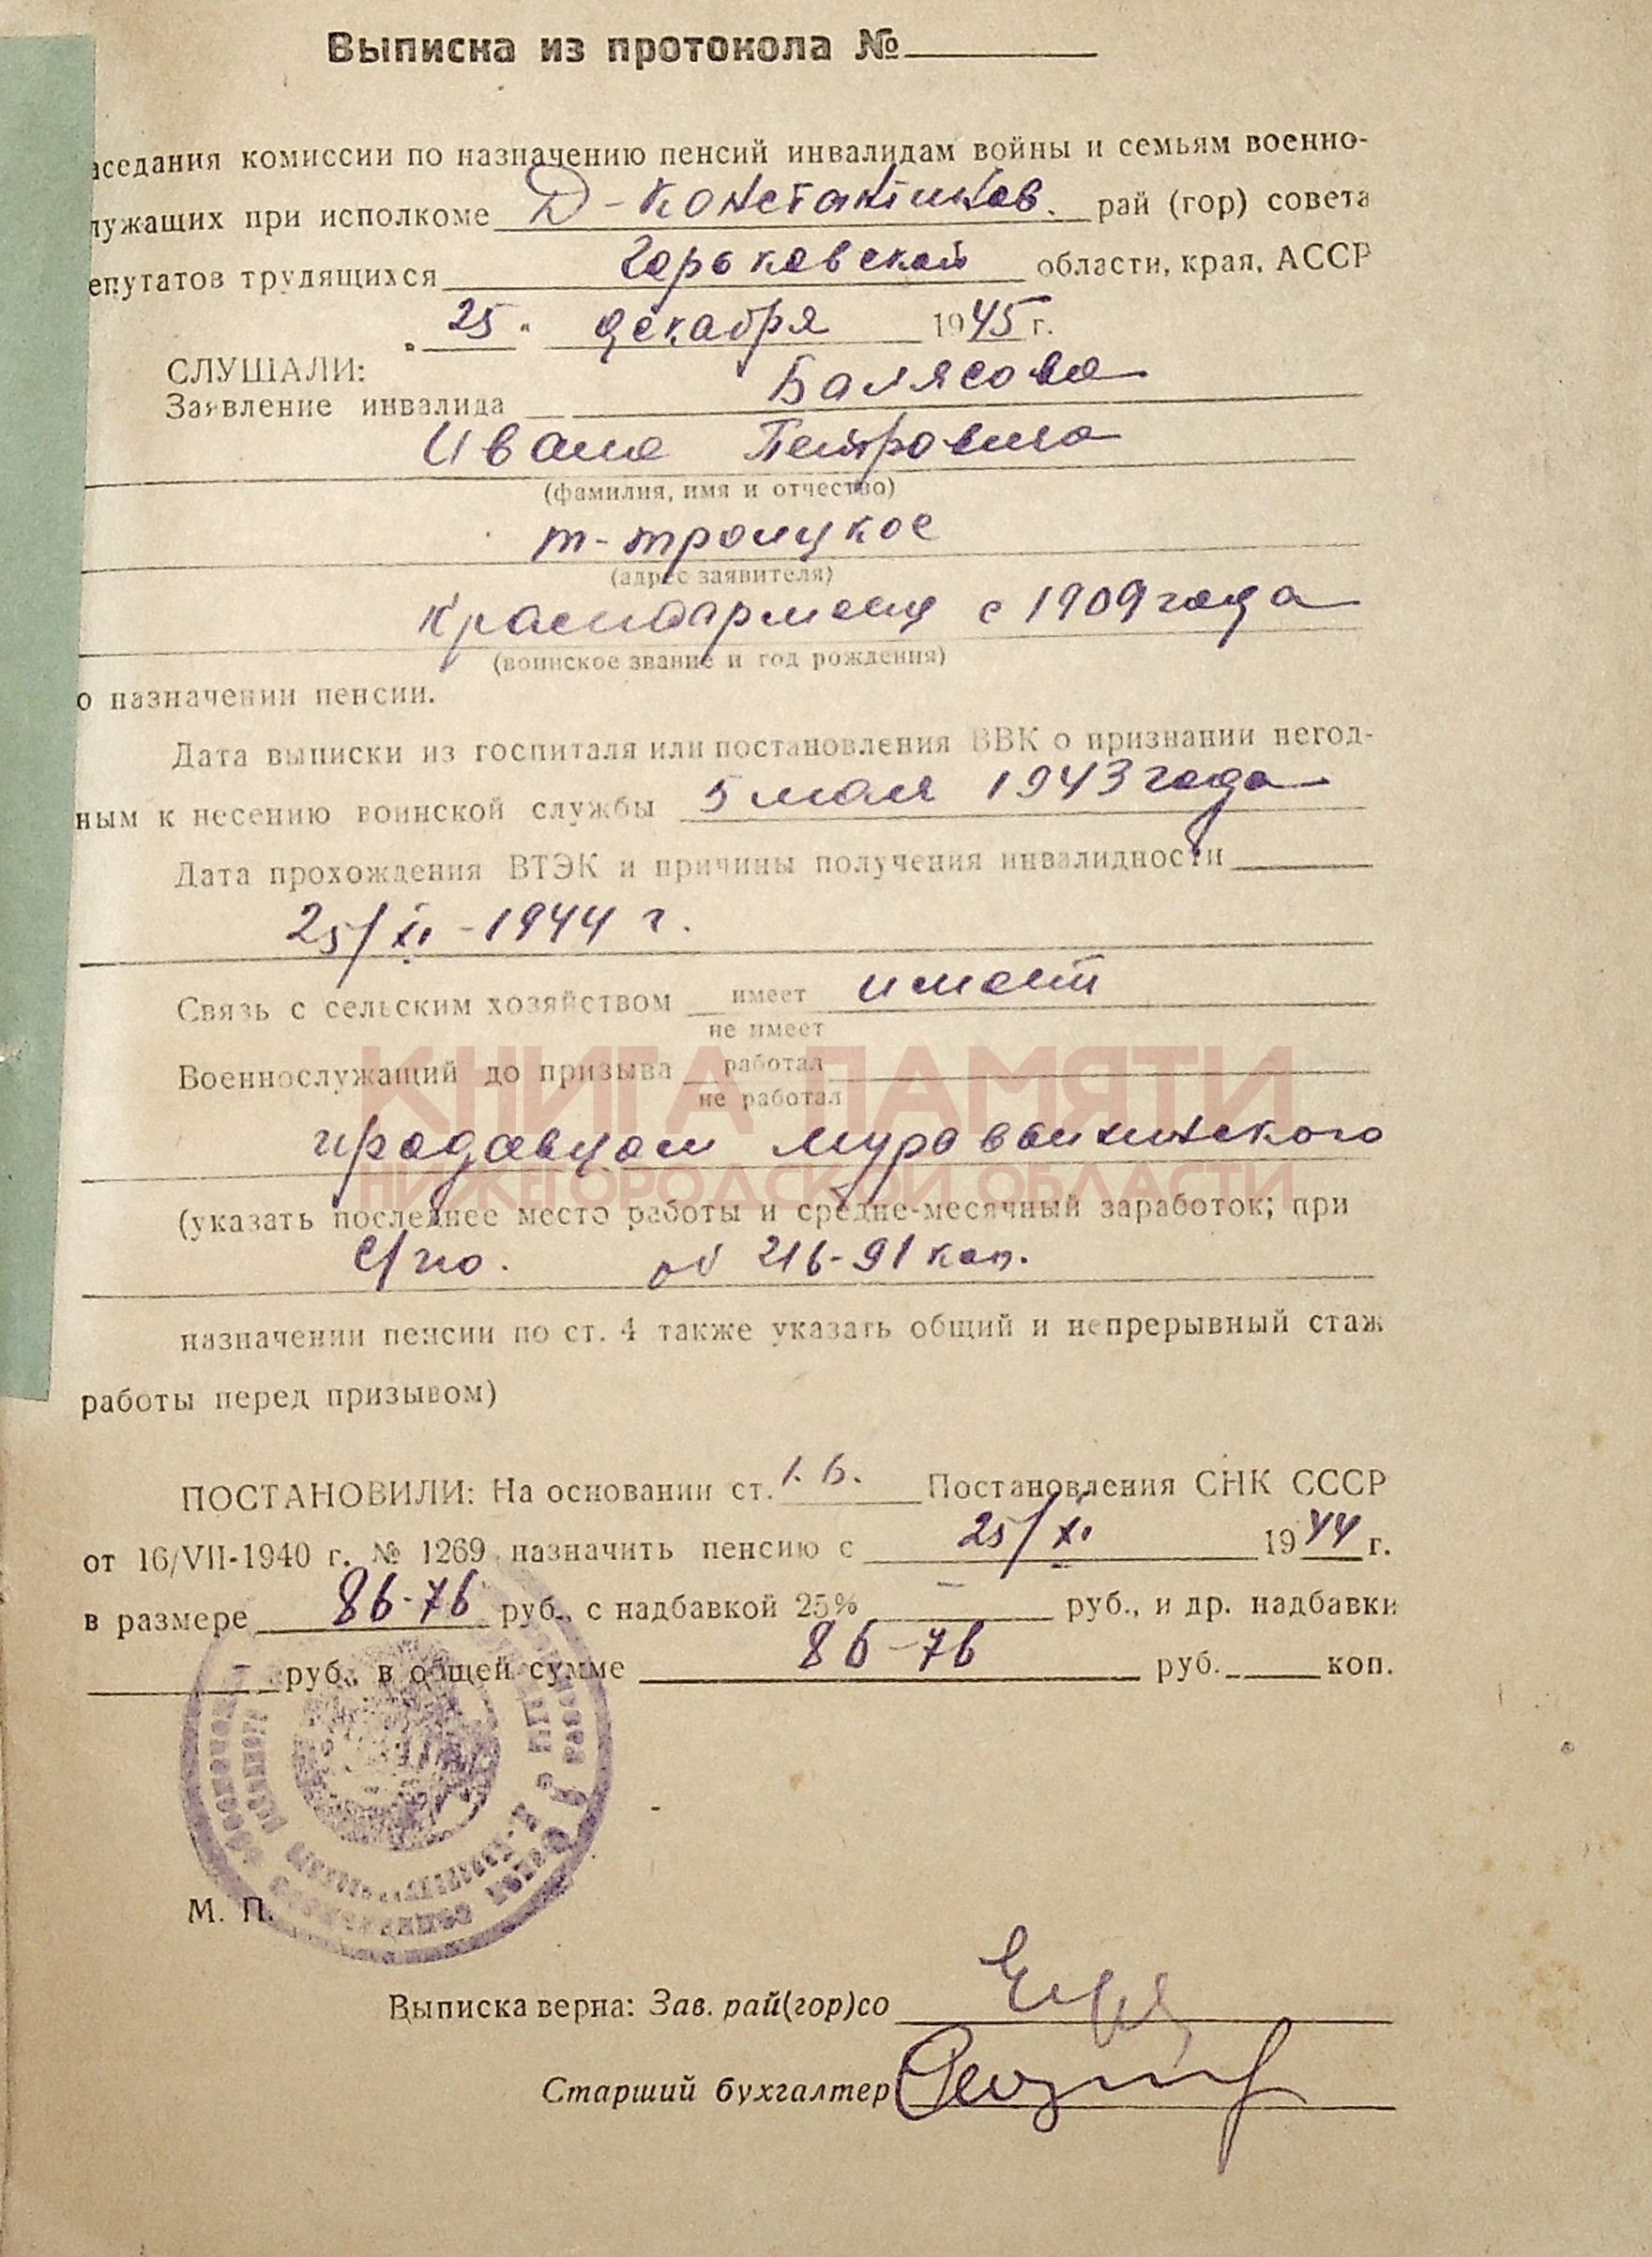 Выписка из протокола №
аседания комиссии по назначению пенсий инвалидам войны и семьям военно-
лужащих при исполкоме Д-Константинов. рай (гор) совета
епутатов трудящихся Горьковской области, края, АССР
„25" декабря 1945 г.
СЛУШАЛИ:
Заявление инвалида Балясова
Ивана Петровича
(фамилия, имя и отчество)
т-троицкое
(адрес заявителя)
Красноармеец с 1909 года
(воинское звание и год рождения)
о назначении пенсии.
Дата выписки из госпиталя или постановления ВВК о признании негод-
ным к несению воинской службы 5 мая 1943 года
Дата прохождения ВТЭК и причины получения инвалидности
25/XI-1944 г.
Связь с сельским хозяйством имеет имеет
не имеет
Военнослужащий до призыва работал
не работал
КНИГА ПАМЯТИ
продавцом Муравьихинского
НИЖЕГОРОДСКОЙ ОБЛАСТИ
(указать последнее место работы и средне-месячный заработок; при
с/по. 216-91 коп.
назначении пенсии по ст. 4 также указать общий и непрерывный стаж
работы перед призывом)
ПОСТАНОВИЛИ: На основании ст. 1.б. Постановления СНК СССР
от 16/VII-1940 г. № 1269 назначить пенсию с 25/XI 1944 г.
в размере 86-76 руб., с надбавкой 25% — руб., и др. надбавки
- руб., в общей сумме 86-76 руб. коп.
М. П.
Выписка верна: Зав. рай(гор)со
Старший бухгалтер